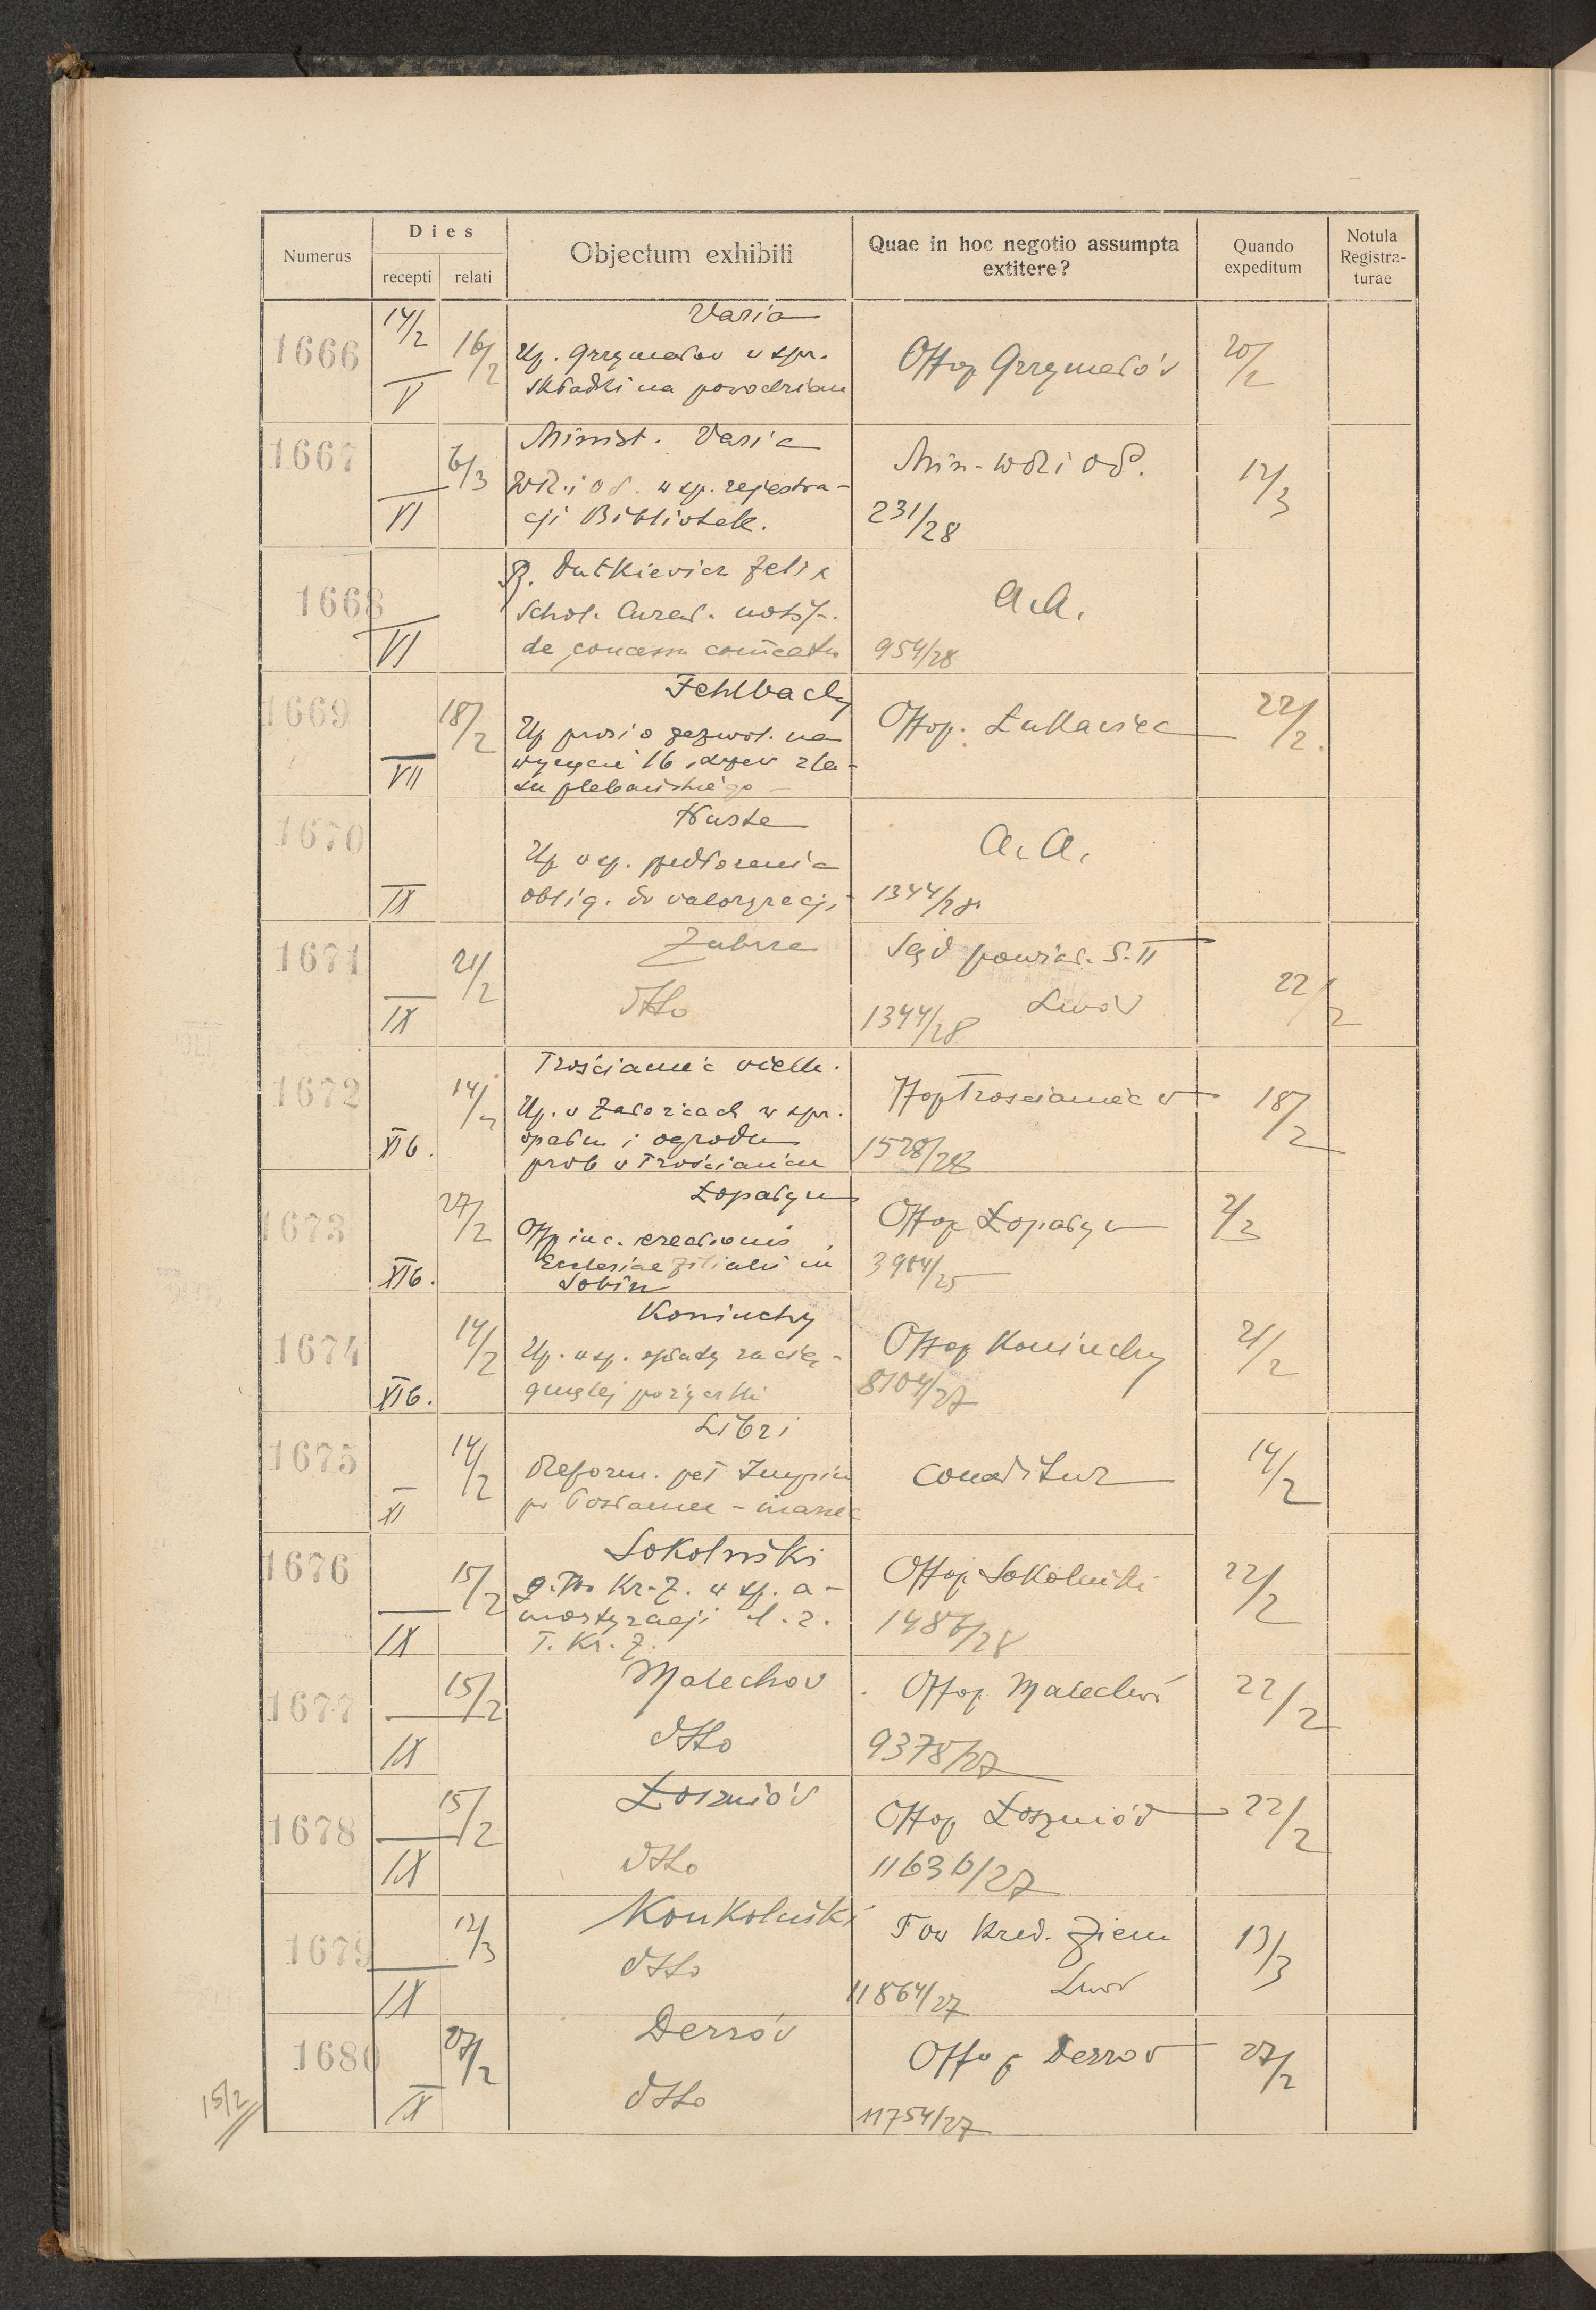 Numerus
Dies
recepti relati
Objectum exhibiti
Quae in hoc negotio assumpta
extitere?
Quando
expeditum
Notula
Registra-
turae
1666
14/2
V
16/2
Varia
Up. Grzymałow w spr.
składki na powodzian
Offop Grzymałów
20/2
1667
VI
6/3
Minist. Varia
WR. i O P. w sp. rejestra-
cji Bibliotek.
Min. WR i OP.
231/28
12/3
1668
VI
P. Dutkiewicz Felix
Schol. Curat. notif.
de concessu
A.A.
954/28
1669
VII
18/2
Fehlbach
Up prosi o zezwol. na
wycięcie 16 drzew z la-
su plebańskiego
Offop. Łukawiec
22/2.
1670
IX
Tłuste
Up w sp. przedłożenia
oblig. do waloryzacji
A. A.
1344/28
1671
IX
21/2
Zubrza
dtto
Sąd powiat. S. II
Lwów
1344/28
22/2
1672
XI b.
14/2
Trościaniec wielk.
Up. w Załoźcach w spr.
opału i ogrodu
prob w Trościańcu
Offop Trościaniec w
1528/28
18/2
1673
XI b.
27/2
Łopatyn
Offop in c. erectionis
Ecclesiae filialis in
Sobin
Offop Łopatyn
3904/25
2/3
1674
XI b.
14/2
Koniuchy
Up. w sp. spłaty zacią-
gniętej pożyczki
Offop Koniuchy
8104/27
21/2
1675
XI
14/2
Libri
Reform. pet
conditur
14/2
1676
IX
15/2
Sokolniki
g. Tow Kr. Z. w sp. a-
mortyzacji l. z.
T. Kr. Z.
Offop Sokolniki
1486/28
22/2
1677
IX
15/2
Malechow
dtto
Offop Malechów
9378/27
22/2
1678
IX
15/2
Łoszniów
dtto
Offop Łoszniów
11636/27
22/2
1679
IX
12/3
Konkolniki
dtto
Tow Kred. Ziem
Lwów
11864/27
13/3
1680
IX
27/2
Derzów
dtto
Offop Derzow
11754/27
27/2
15/2